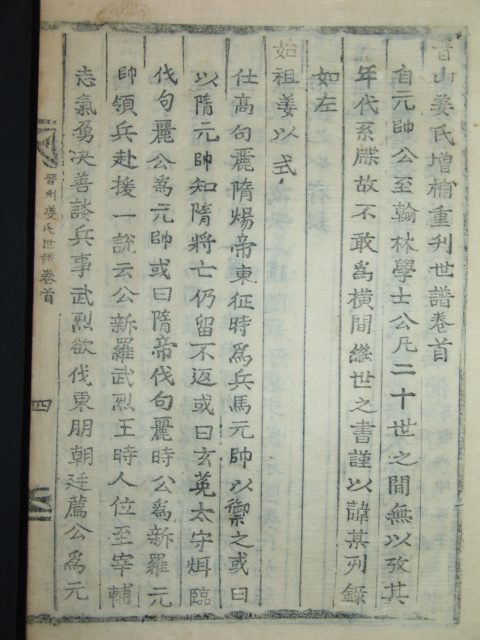 晉山姜氏增補重刊世譜卷首
自元帥公至翰林學士公凡二十世之間無以攷其
年代系牒故不敢爲橫間繼世之書謹以諱某列錄
如左
始祖姜以式
仕高句麗隋煬帝東征時爲兵馬元帥以禦之或曰
以隋元帥知隋將亡仍留不返或曰玄菟太守耿臨
伐句麗公爲元帥或曰隋帝伐句麗時公爲新羅元
帥領兵赴援一說云公新羅武烈王時人位至宰輔
志氣勇決善談兵事武烈欲伐東朋朝廷薦公爲元
晋州姜氏世譜卷首
四